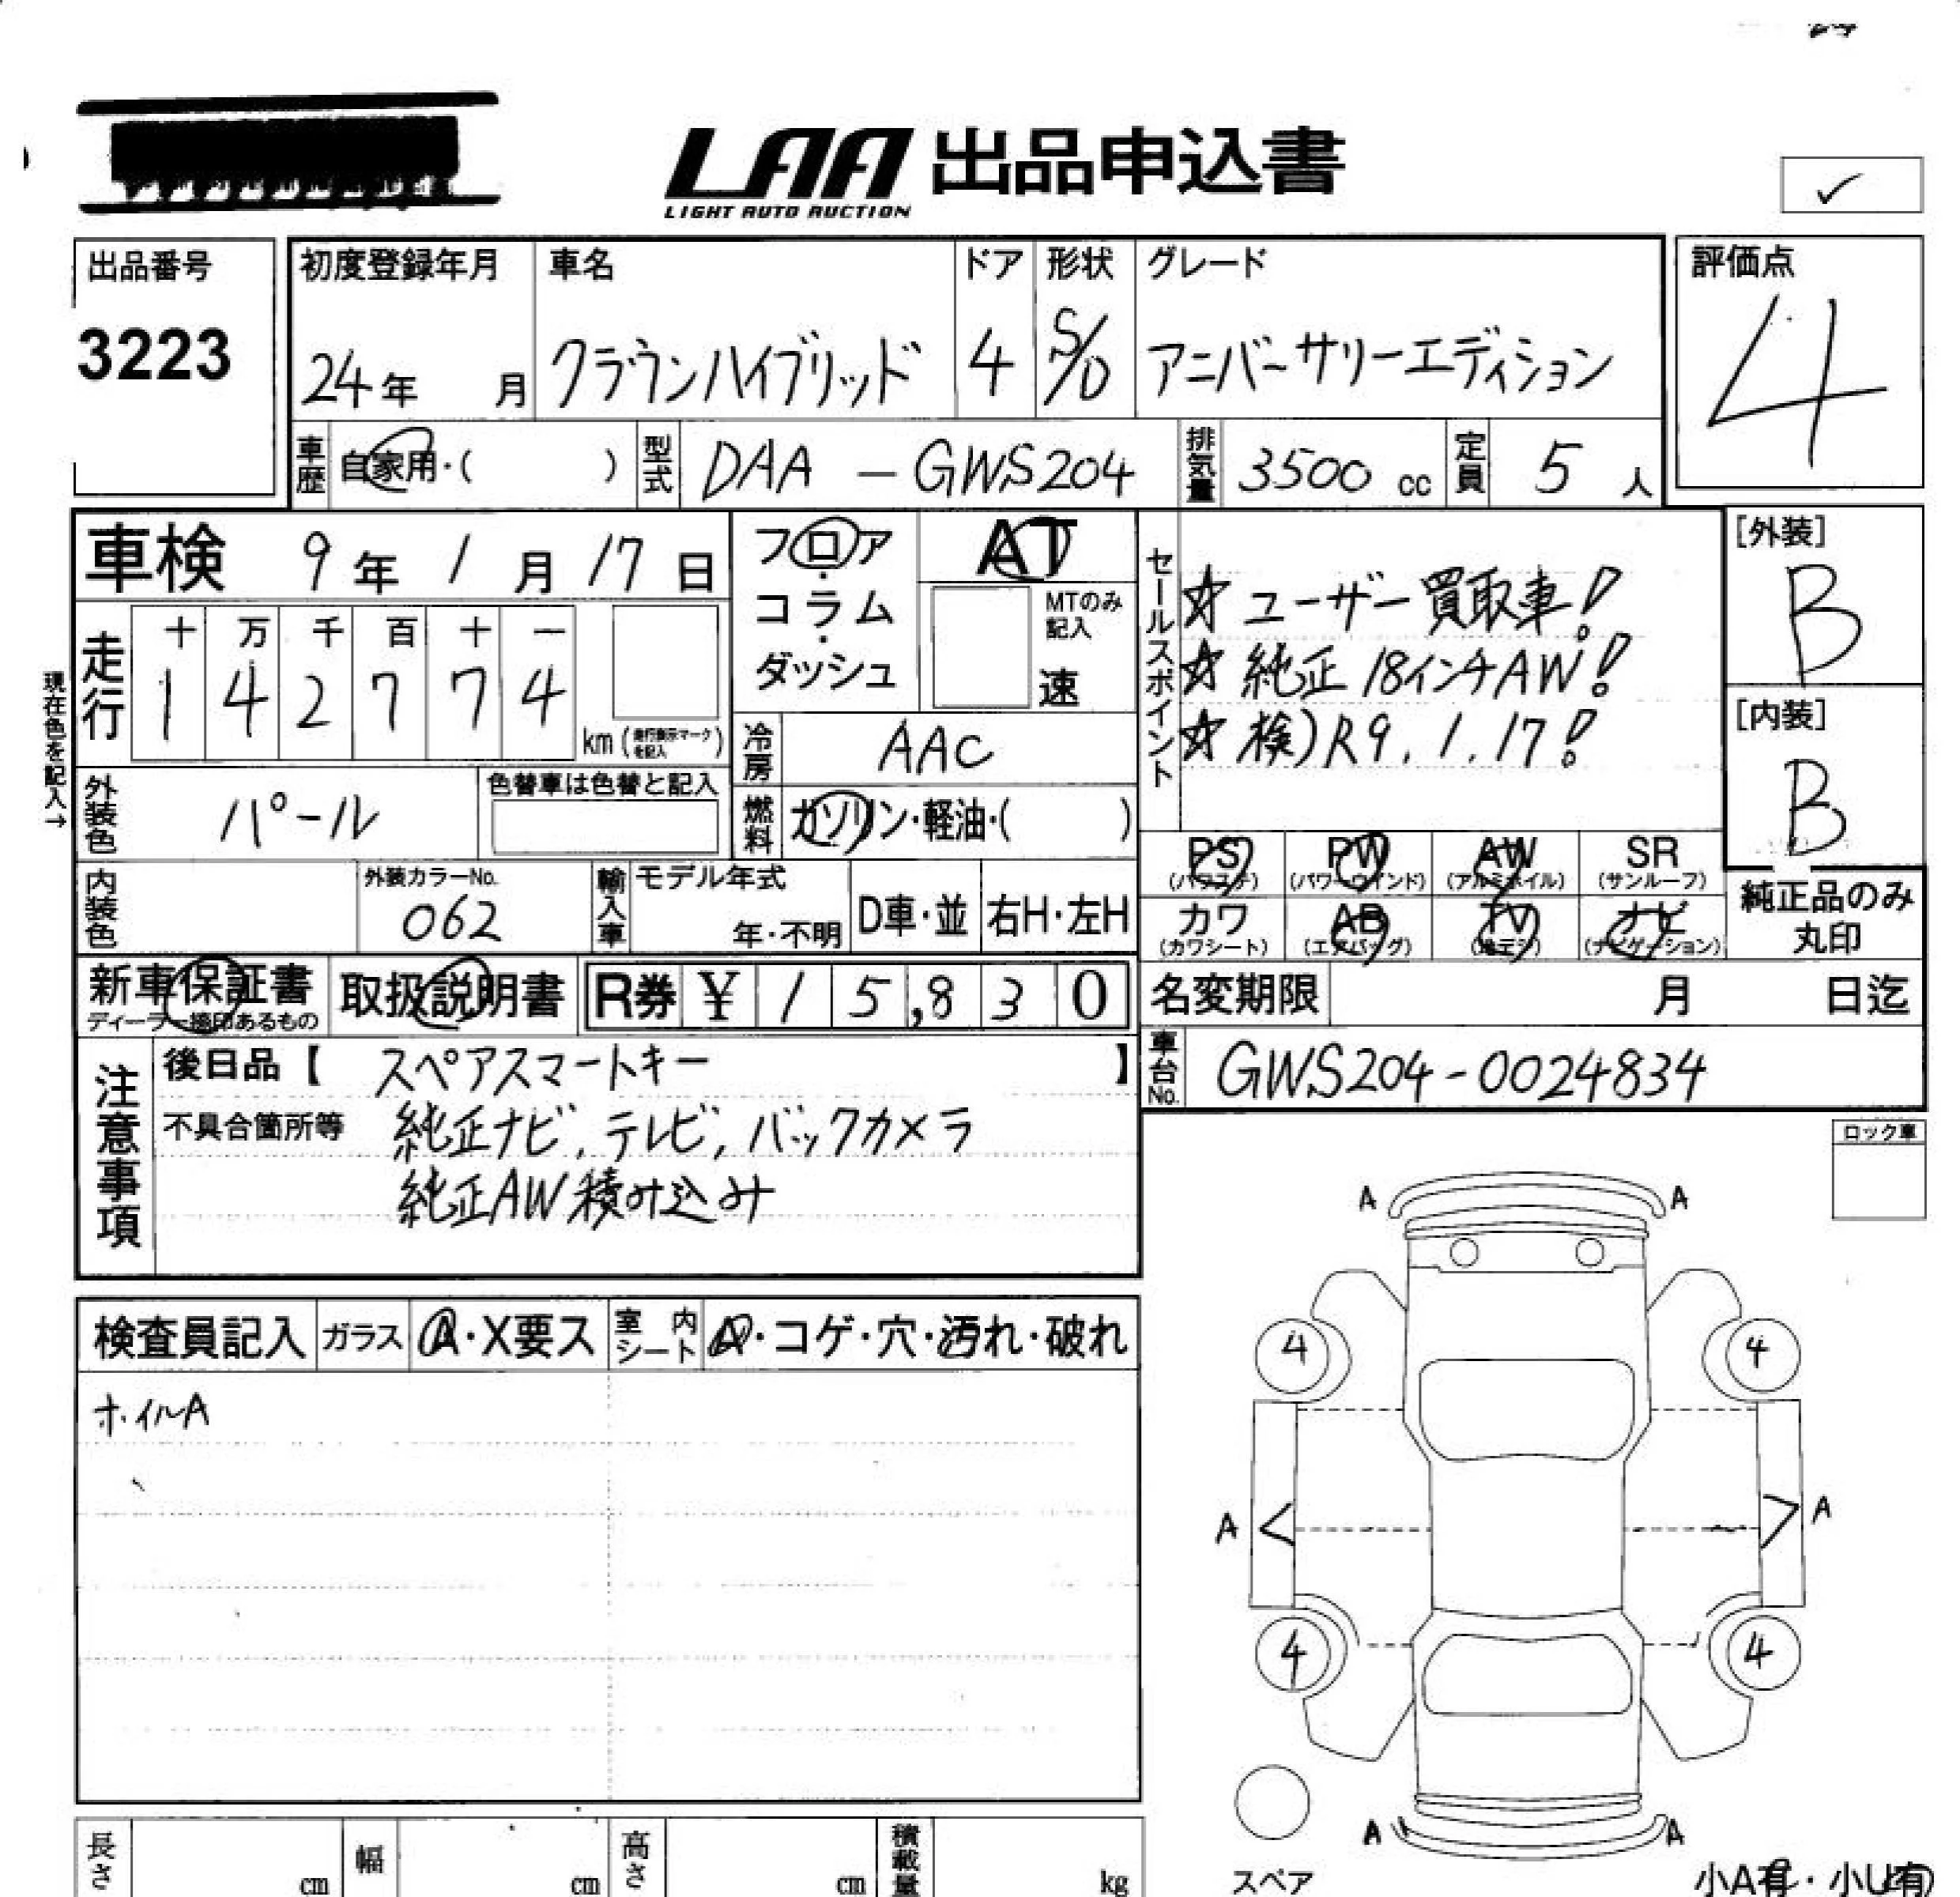 LAA 出品申込書
LIGHT AUTO AUCTION
出品番号
3223
初度登録年月
24年 月
車名
クラウンハイブリッド
ドア
4
形状
S/D
グレード
アニバーサリーエディション
評価点
4
車歴 自家用・( )
型式 DAA-GWS204
排気量 3500 cc
定員 5 人
車検 9年 1月 17日
フロア・コラム・ダッシュ
AT
MTのみ記入
速
セールスポイント
☆ ユーザー買取車!
☆ 純正18インチAW!
☆ 検)R9.1.17!
[外装]
B
[内装]
B
現在色を記入→
走行
十 万 千 百 十 一
1 4 2 7 7 4
km (走行表示マークを記入)
冷房 AAC
外装色 パール
色替車は色替と記入
燃料 ガソリン・軽油・( )
内装色
外装カラーNo.
062
輸入車
モデル年式
年・不明
D車・並
右H・左H
PS (パワステ)
PW (パワーウインド)
AW (アルミホイル)
SR (サンルーフ)
カワ (カワシート)
AB (エアバッグ)
TV (地デジ)
ナビ (ナビゲーション)
純正品のみ丸印
新車保証書
ディーラー捺印あるもの
取扱説明書
R券 ¥ 15,830
名変期限 月 日迄
車台No. GWS204-0024834
注意事項
後日品【 スペアスマートキー 】
不具合箇所等 純正ナビ,テレビ,バックカメラ
純正AW積み込み
ロック車
検査員記入
ガラス A・X要ス
室内シート A・コゲ・穴・汚れ・破れ
ホイルA
A A
4 4
A A
4 4
A A
スペア
小A有・小U有
長さ cm
幅 cm
高さ cm
積載量 kg